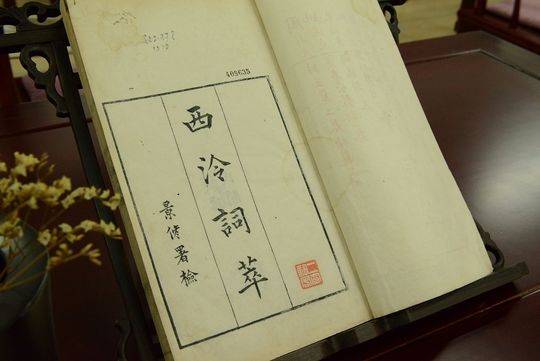 405635
西泠詞萃
署檢